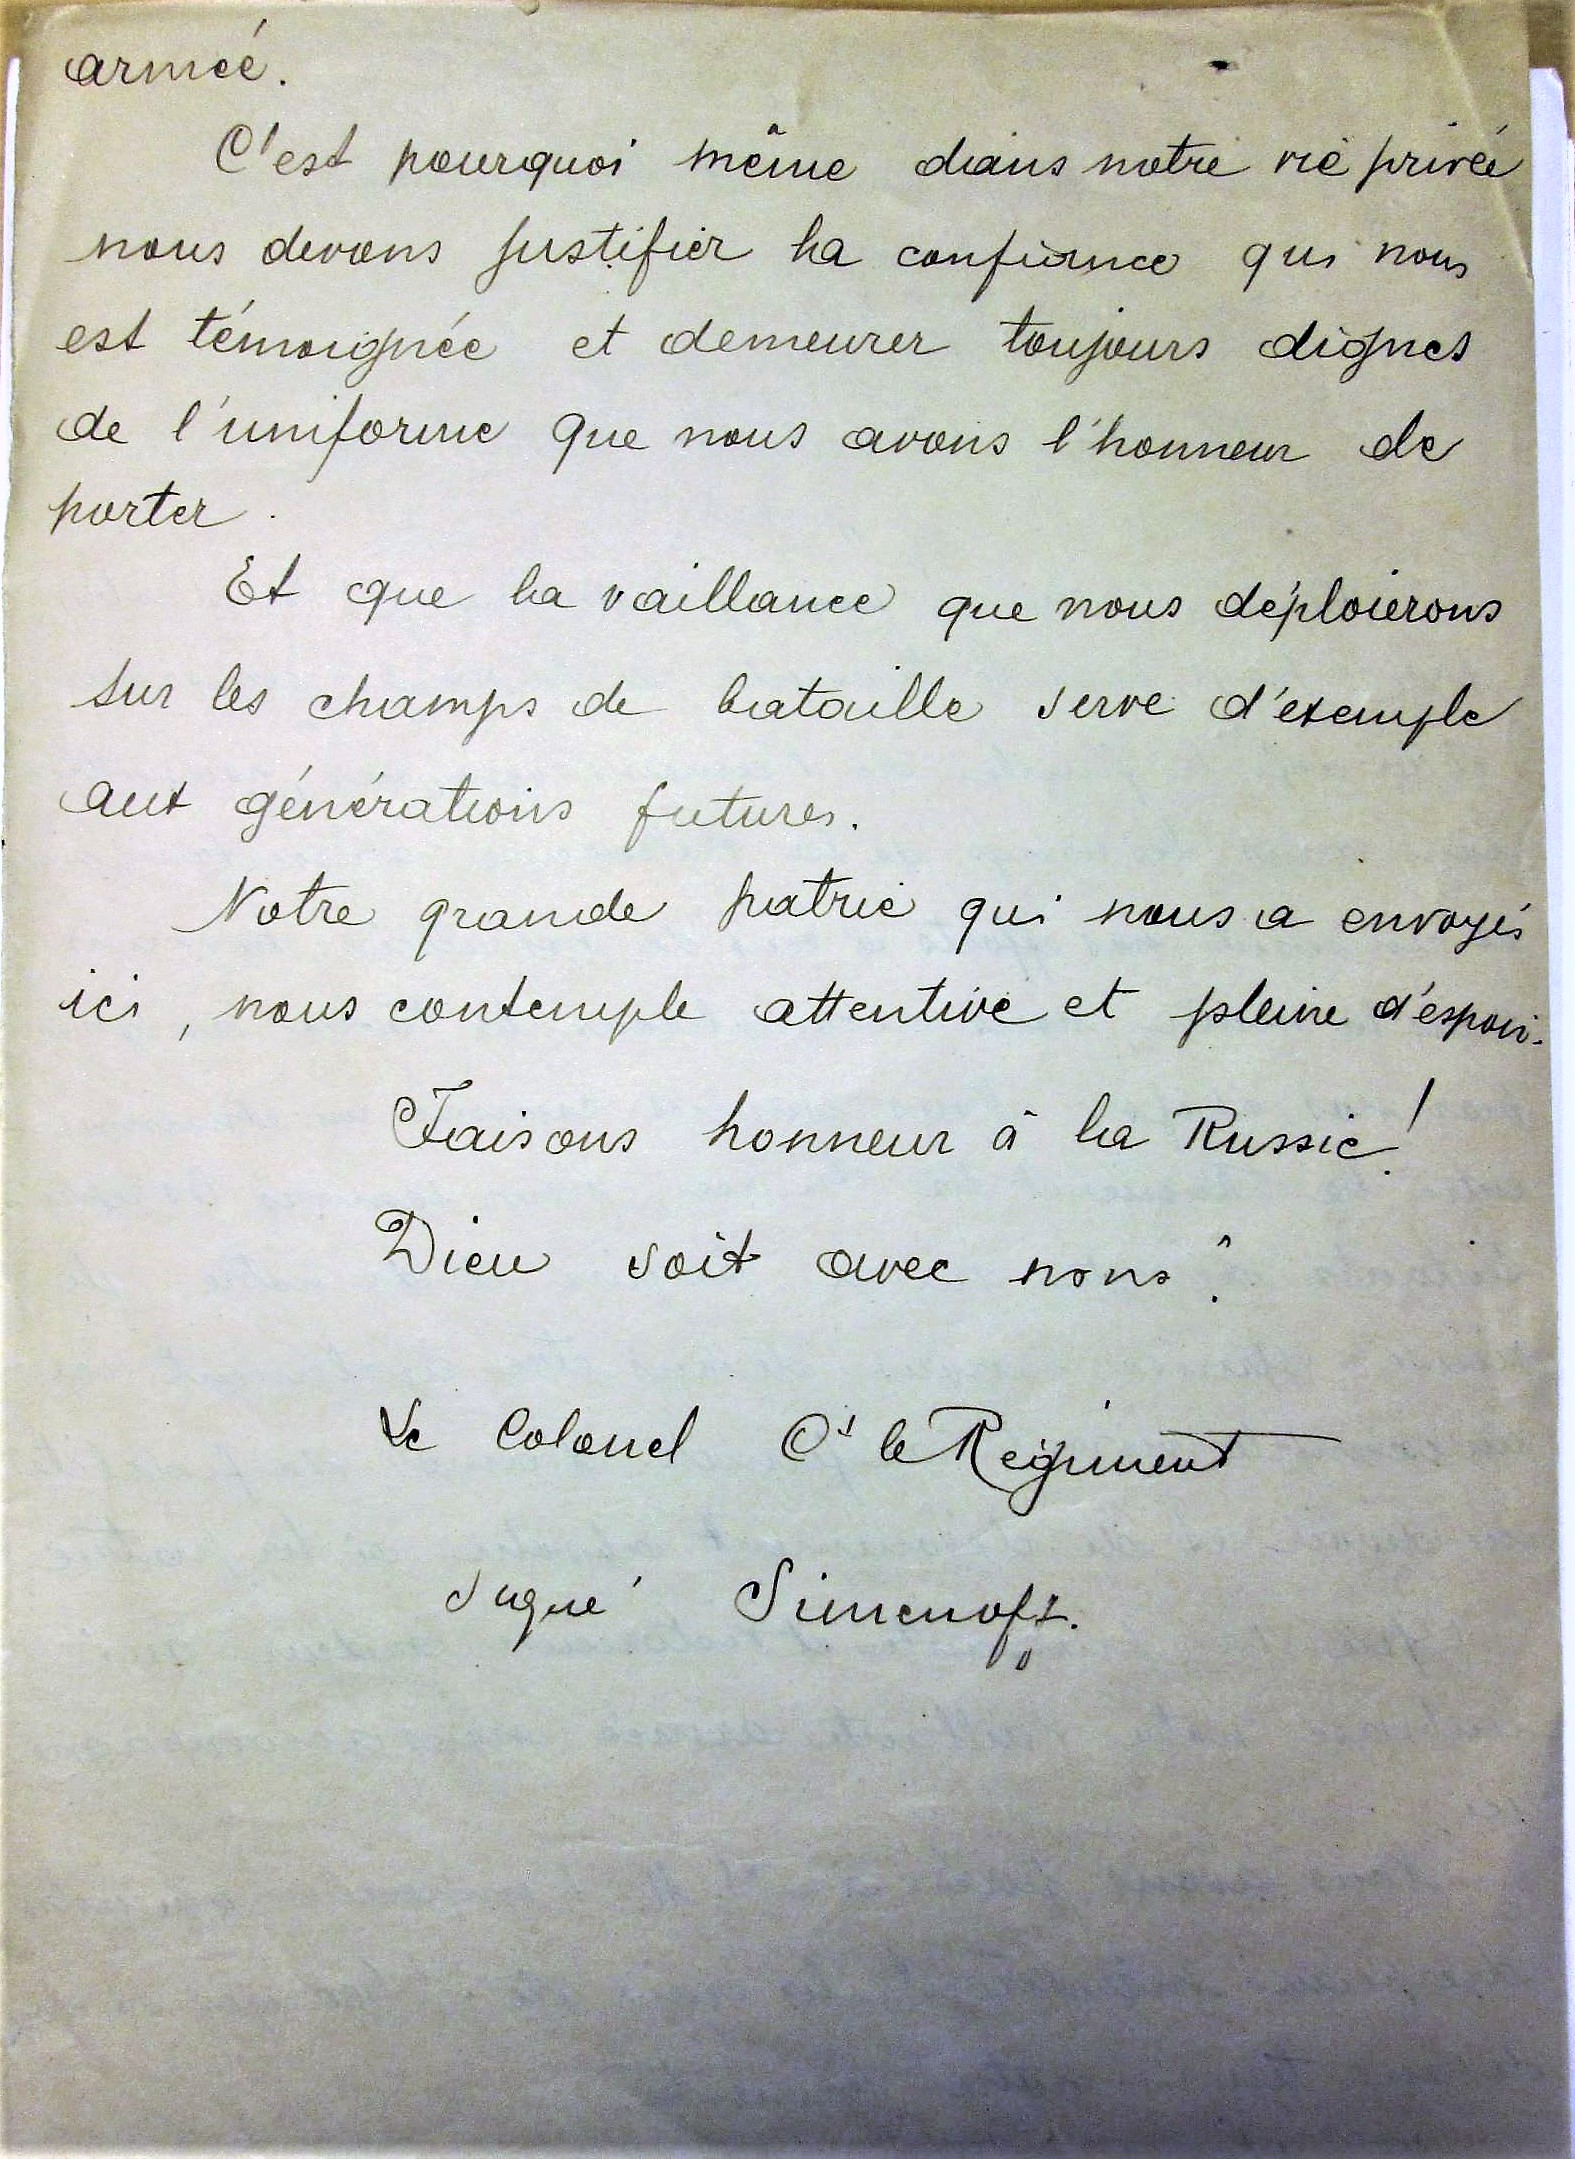 armée.
C'est pourquoi même dans notre vie privée
nous devons justifier la confiance qui nous
est témoignée et demeurer toujours dignes
de l'uniforme que nous avons l'honneur de
porter.
Et que la vaillance que nous déploierons
sur les champs de bataille serve d'exemple
aux générations futures.
Notre grande patrie qui nous a envoyés
ici, nous contemple attentive et pleine d'espoir.
Faisons honneur à la Russie!
Dieu soit avec nous!
Le Colonel Ct le Régiment
signé Simenoff.